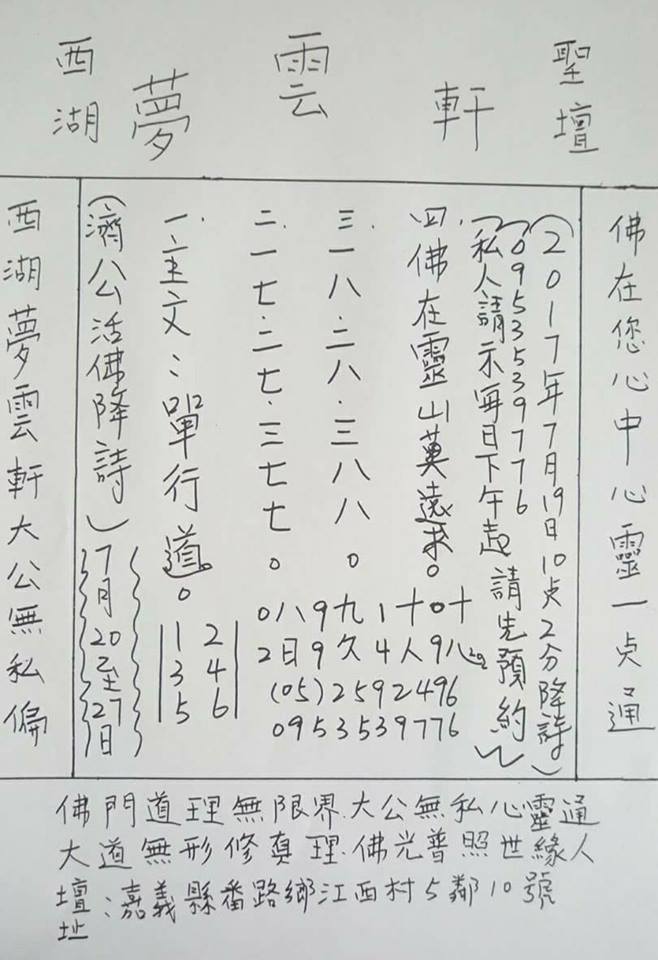 西湖夢雲軒聖壇
佛在您心中心靈一点通
(2017年7月19日10点2分降詩)
(0953539776
私人請示每日下午起 請先預約)
四.佛在靈山莫遠求。
三.一八.二八.三八八。
二.一七.二七.三七七。
一.主文:單行道。
(濟公活佛降詩)7月20至27日
1 2
3 4
5 6
0八9九1十0十
2日9欠4人9心
(05)2592496
0953539776
西湖夢雲軒大公無私偏
佛門道理無限界.大公無私心靈通
大道無形修真理.佛光普照世緣人
壇址:嘉義縣番路鄉江西村5鄰10號